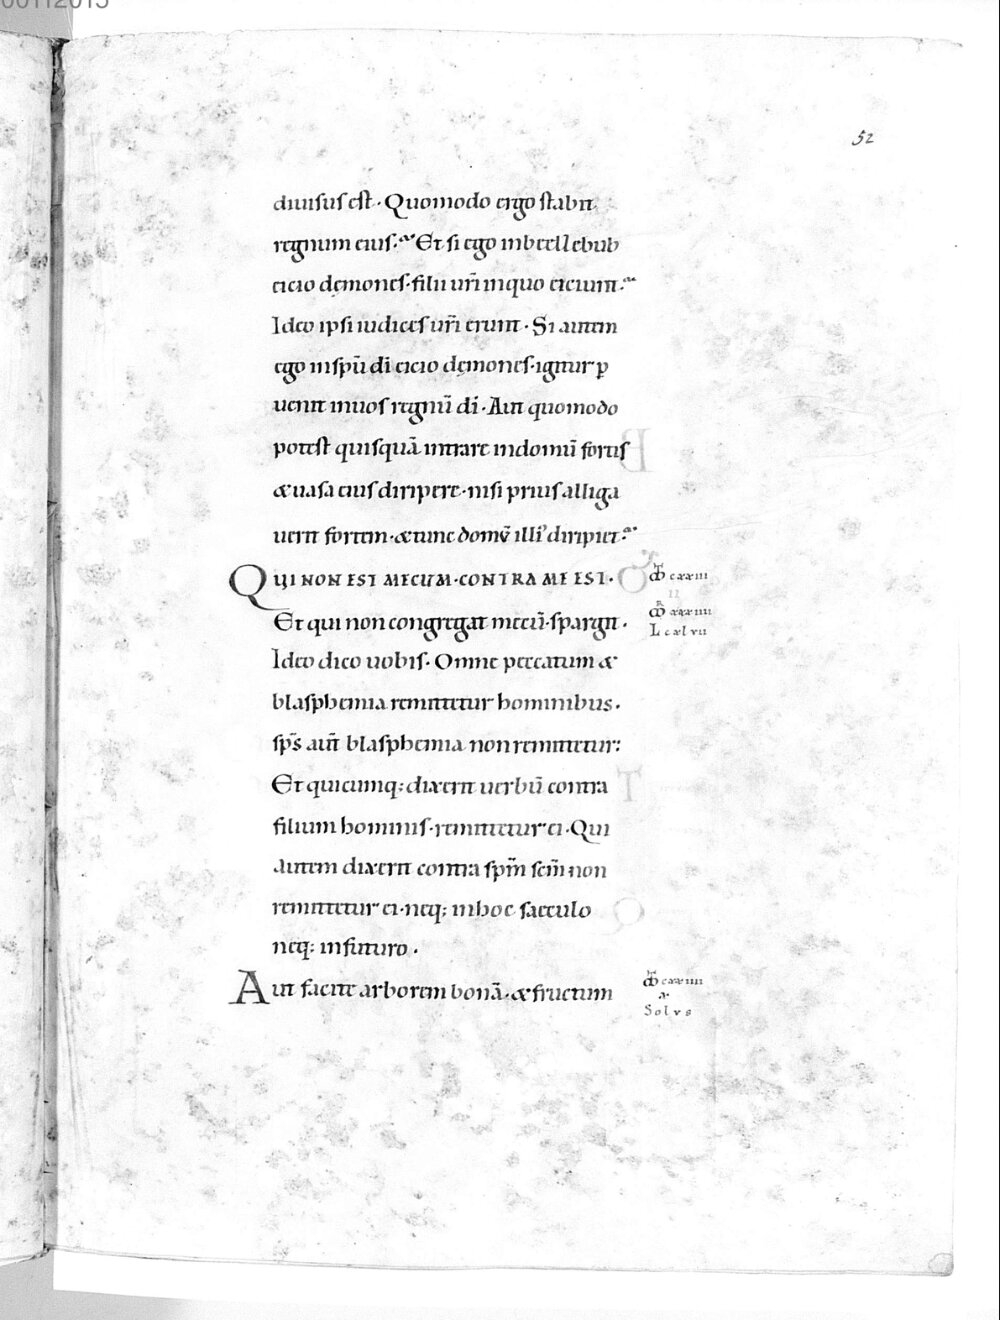 52
diuisus est· Quomodo ergo stabit
regnum eius· Et si ego in beellebub
eicio dęmones· filii ur̄i in quo eiciunt·
Ideo ipsi iudices ur̄i erunt· Si autem
ego in spū di eicio dęmones· igitur ꝑ
uenit in uos regnū di· Aut quomodo
potest quisquā intrare in domū fortis
& uasa eius diripere· nisi prius alliga
uerit fortem· & tunc domū illi' diripiet·
QUI NON EST MECUM· CONTRA ME EST· cxxiii
xxxiiii
Et qui non congregat mecū· spargit· L cxlvii
Ideo dico uobis· Omne peccatum &
blasphemia remittetur hominibus·
sp̄s aut̄ blasphemia non remittetur:
Et quicumq; dixerit uerbū contra
filium hominis· remittetur ei· Qui
autem dixerit contra spm̄ scm̄ non
remittetur ei· neq; in hoc saeculo
neq; in futuro·
Aut facite arborem bonā· & fructum cxxiiii
Solus